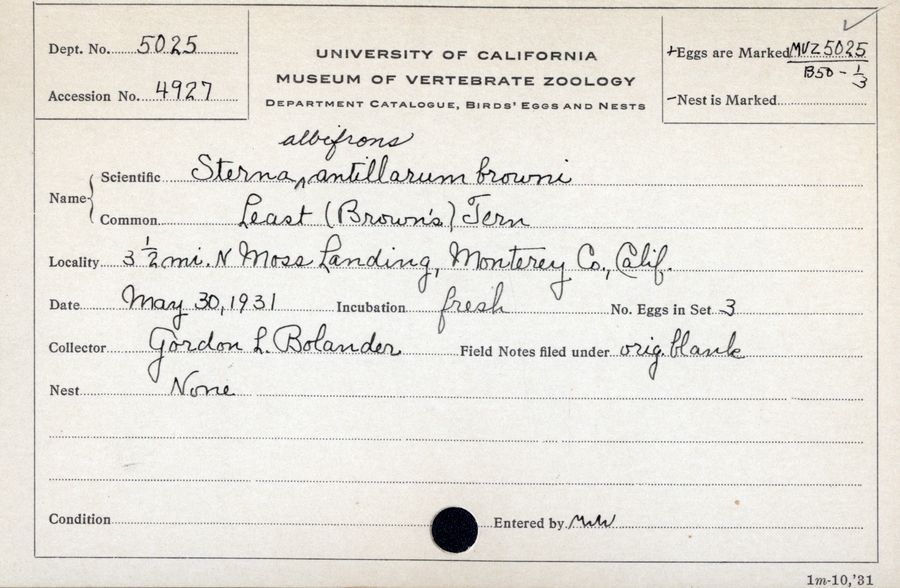 Dept. No. 5025
Accession No. 4927
UNIVERSITY OF CALIFORNIA
MUSEUM OF VERTEBRATE ZOOLOGY
DEPARTMENT CATALOGUE, BIRDS' EGGS AND NESTS
+Eggs are Marked MVZ 5025
B50 - 1/3
-Nest is Marked
albifrons
Name { Scientific Sterna ‸ antillarum browni
Common Least (Brown's) Tern
Locality 3 1/2 mi. N Moss Landing, Monterey Co., Calif.
Date May 30, 1931 Incubation fresh No. Eggs in Set 3
Collector Gordon L. Bolander Field Notes filed under orig. blank
Nest None
Condition Entered by
1m-10,'31